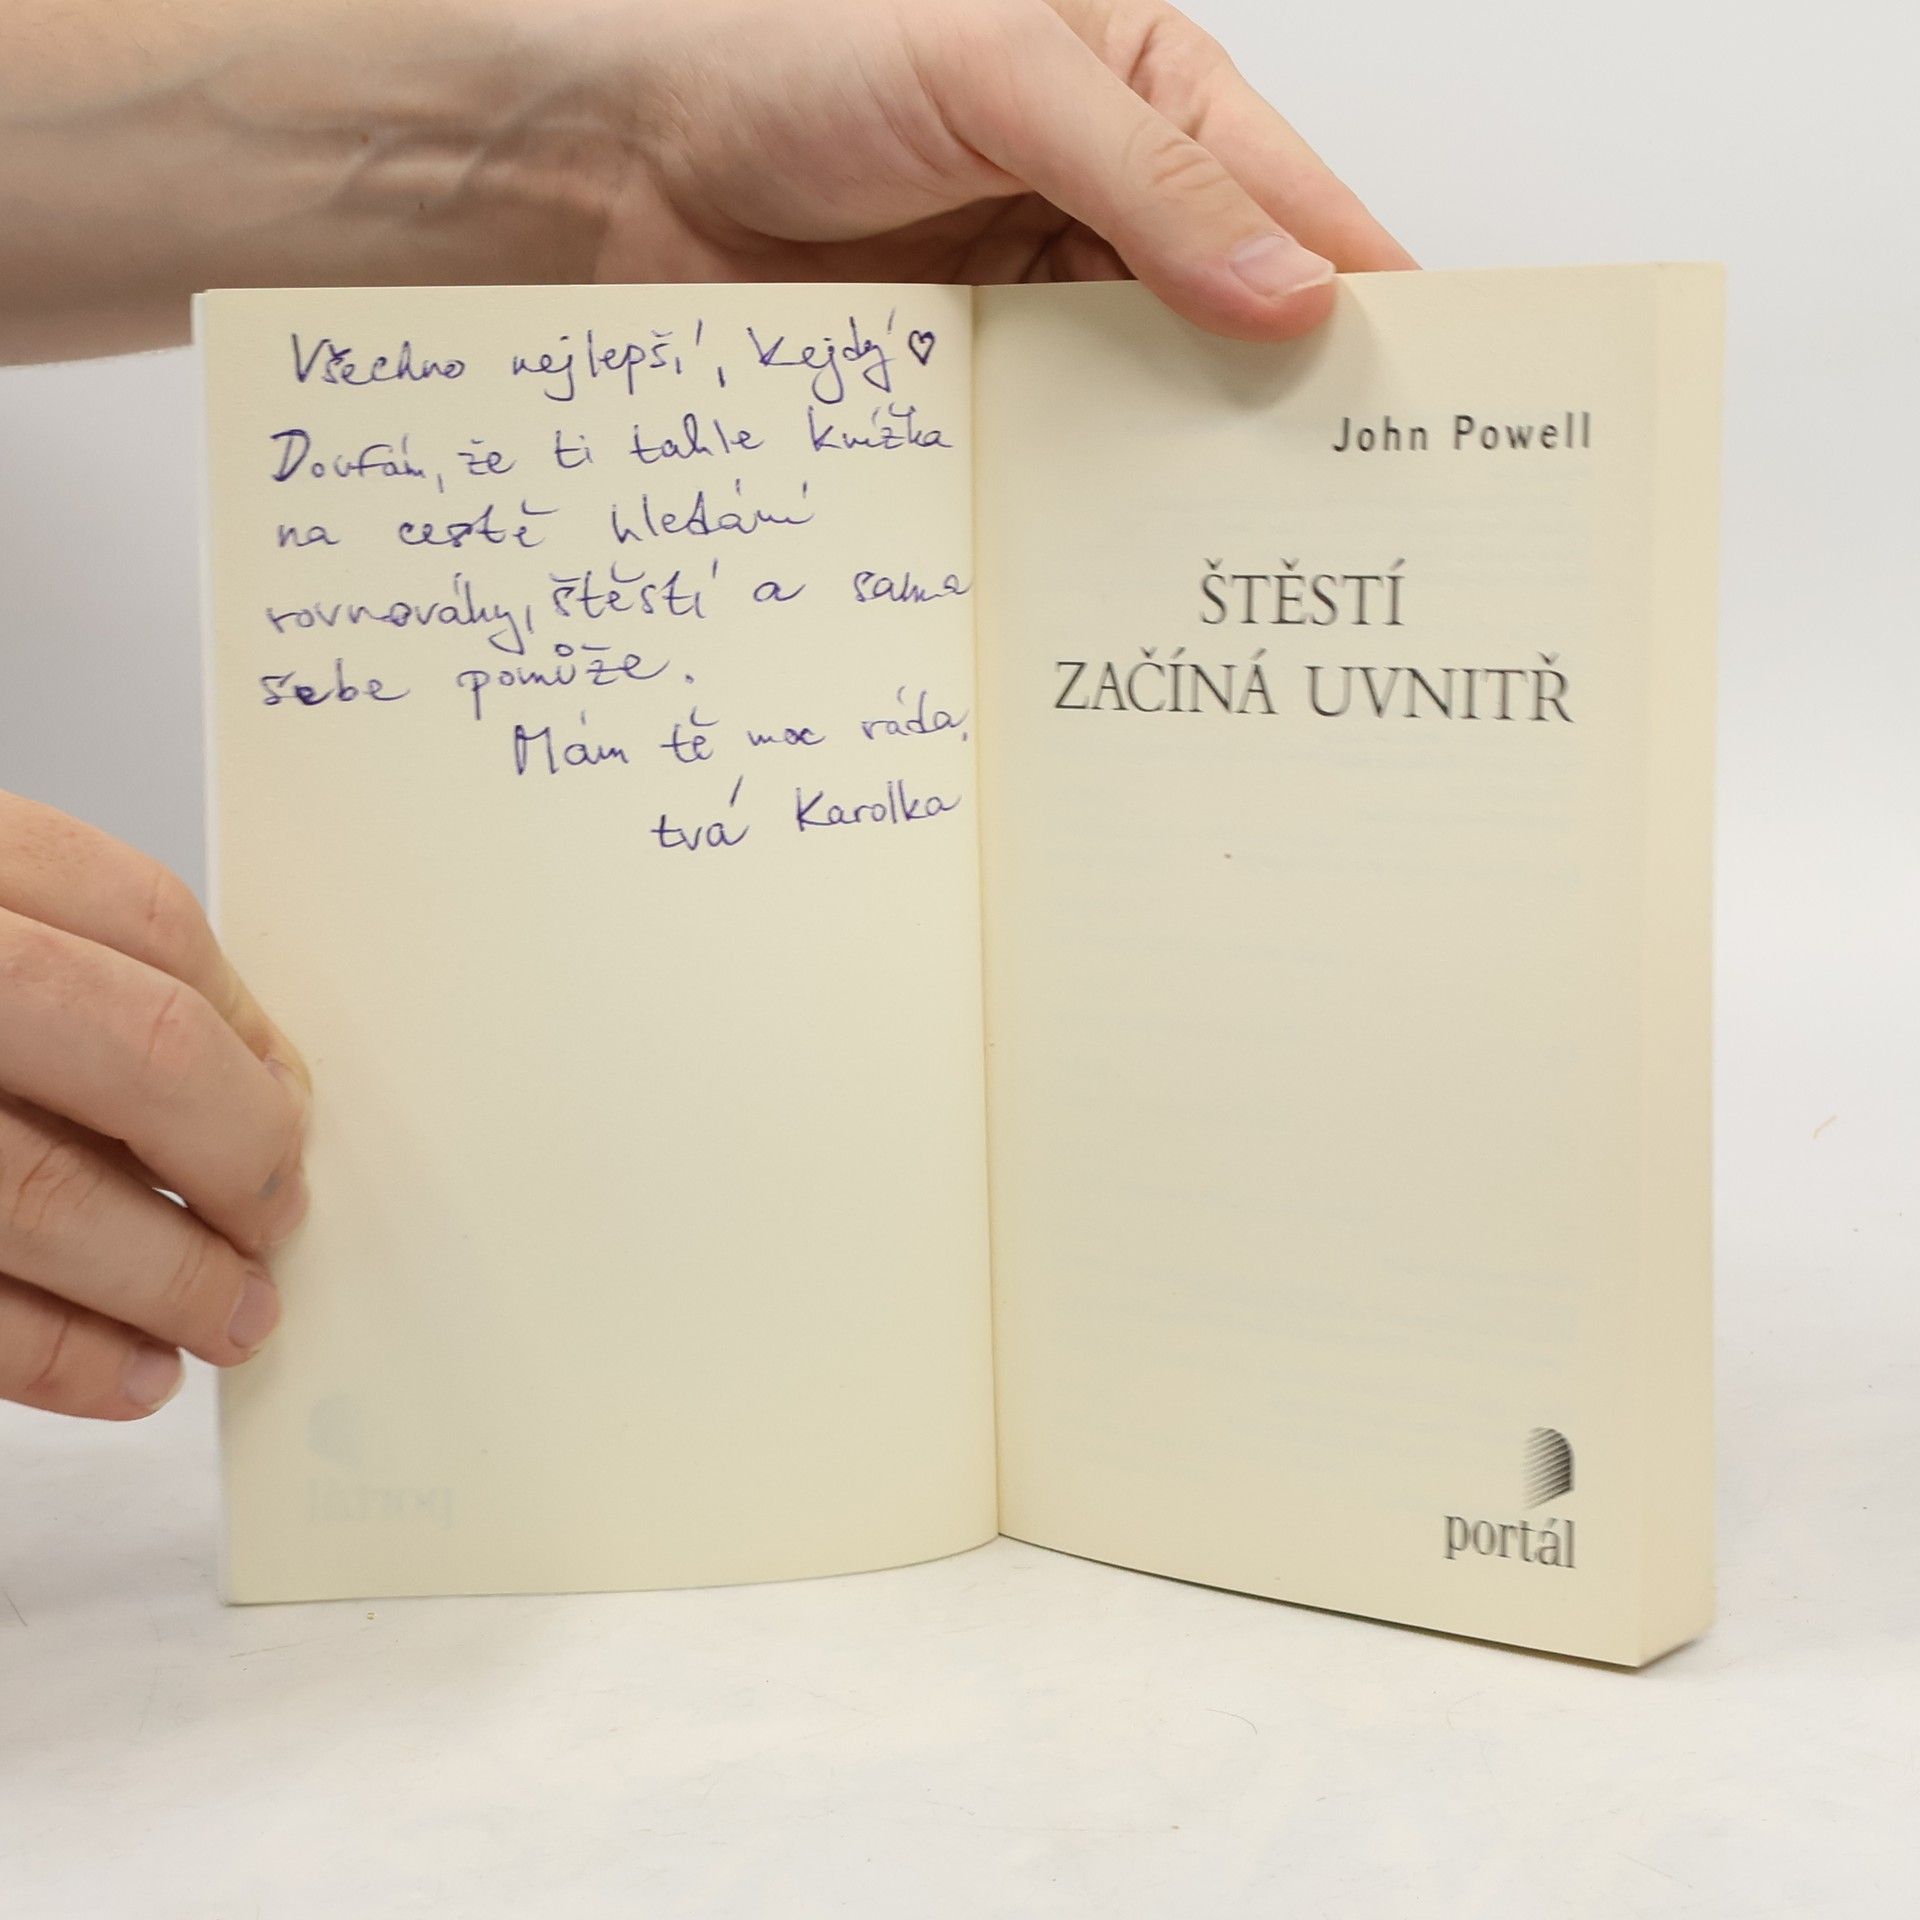 Všechno nejlepší, Kejdý ♡
Doufám, že ti tahle knížka
na cestě hledání
rovnováhy, štěstí a sama
sebe pomůže.
Mám tě moc ráda,
tvá Karolka
John Powell
ŠTĚSTÍ
ZAČÍNÁ UVNITŘ
portál